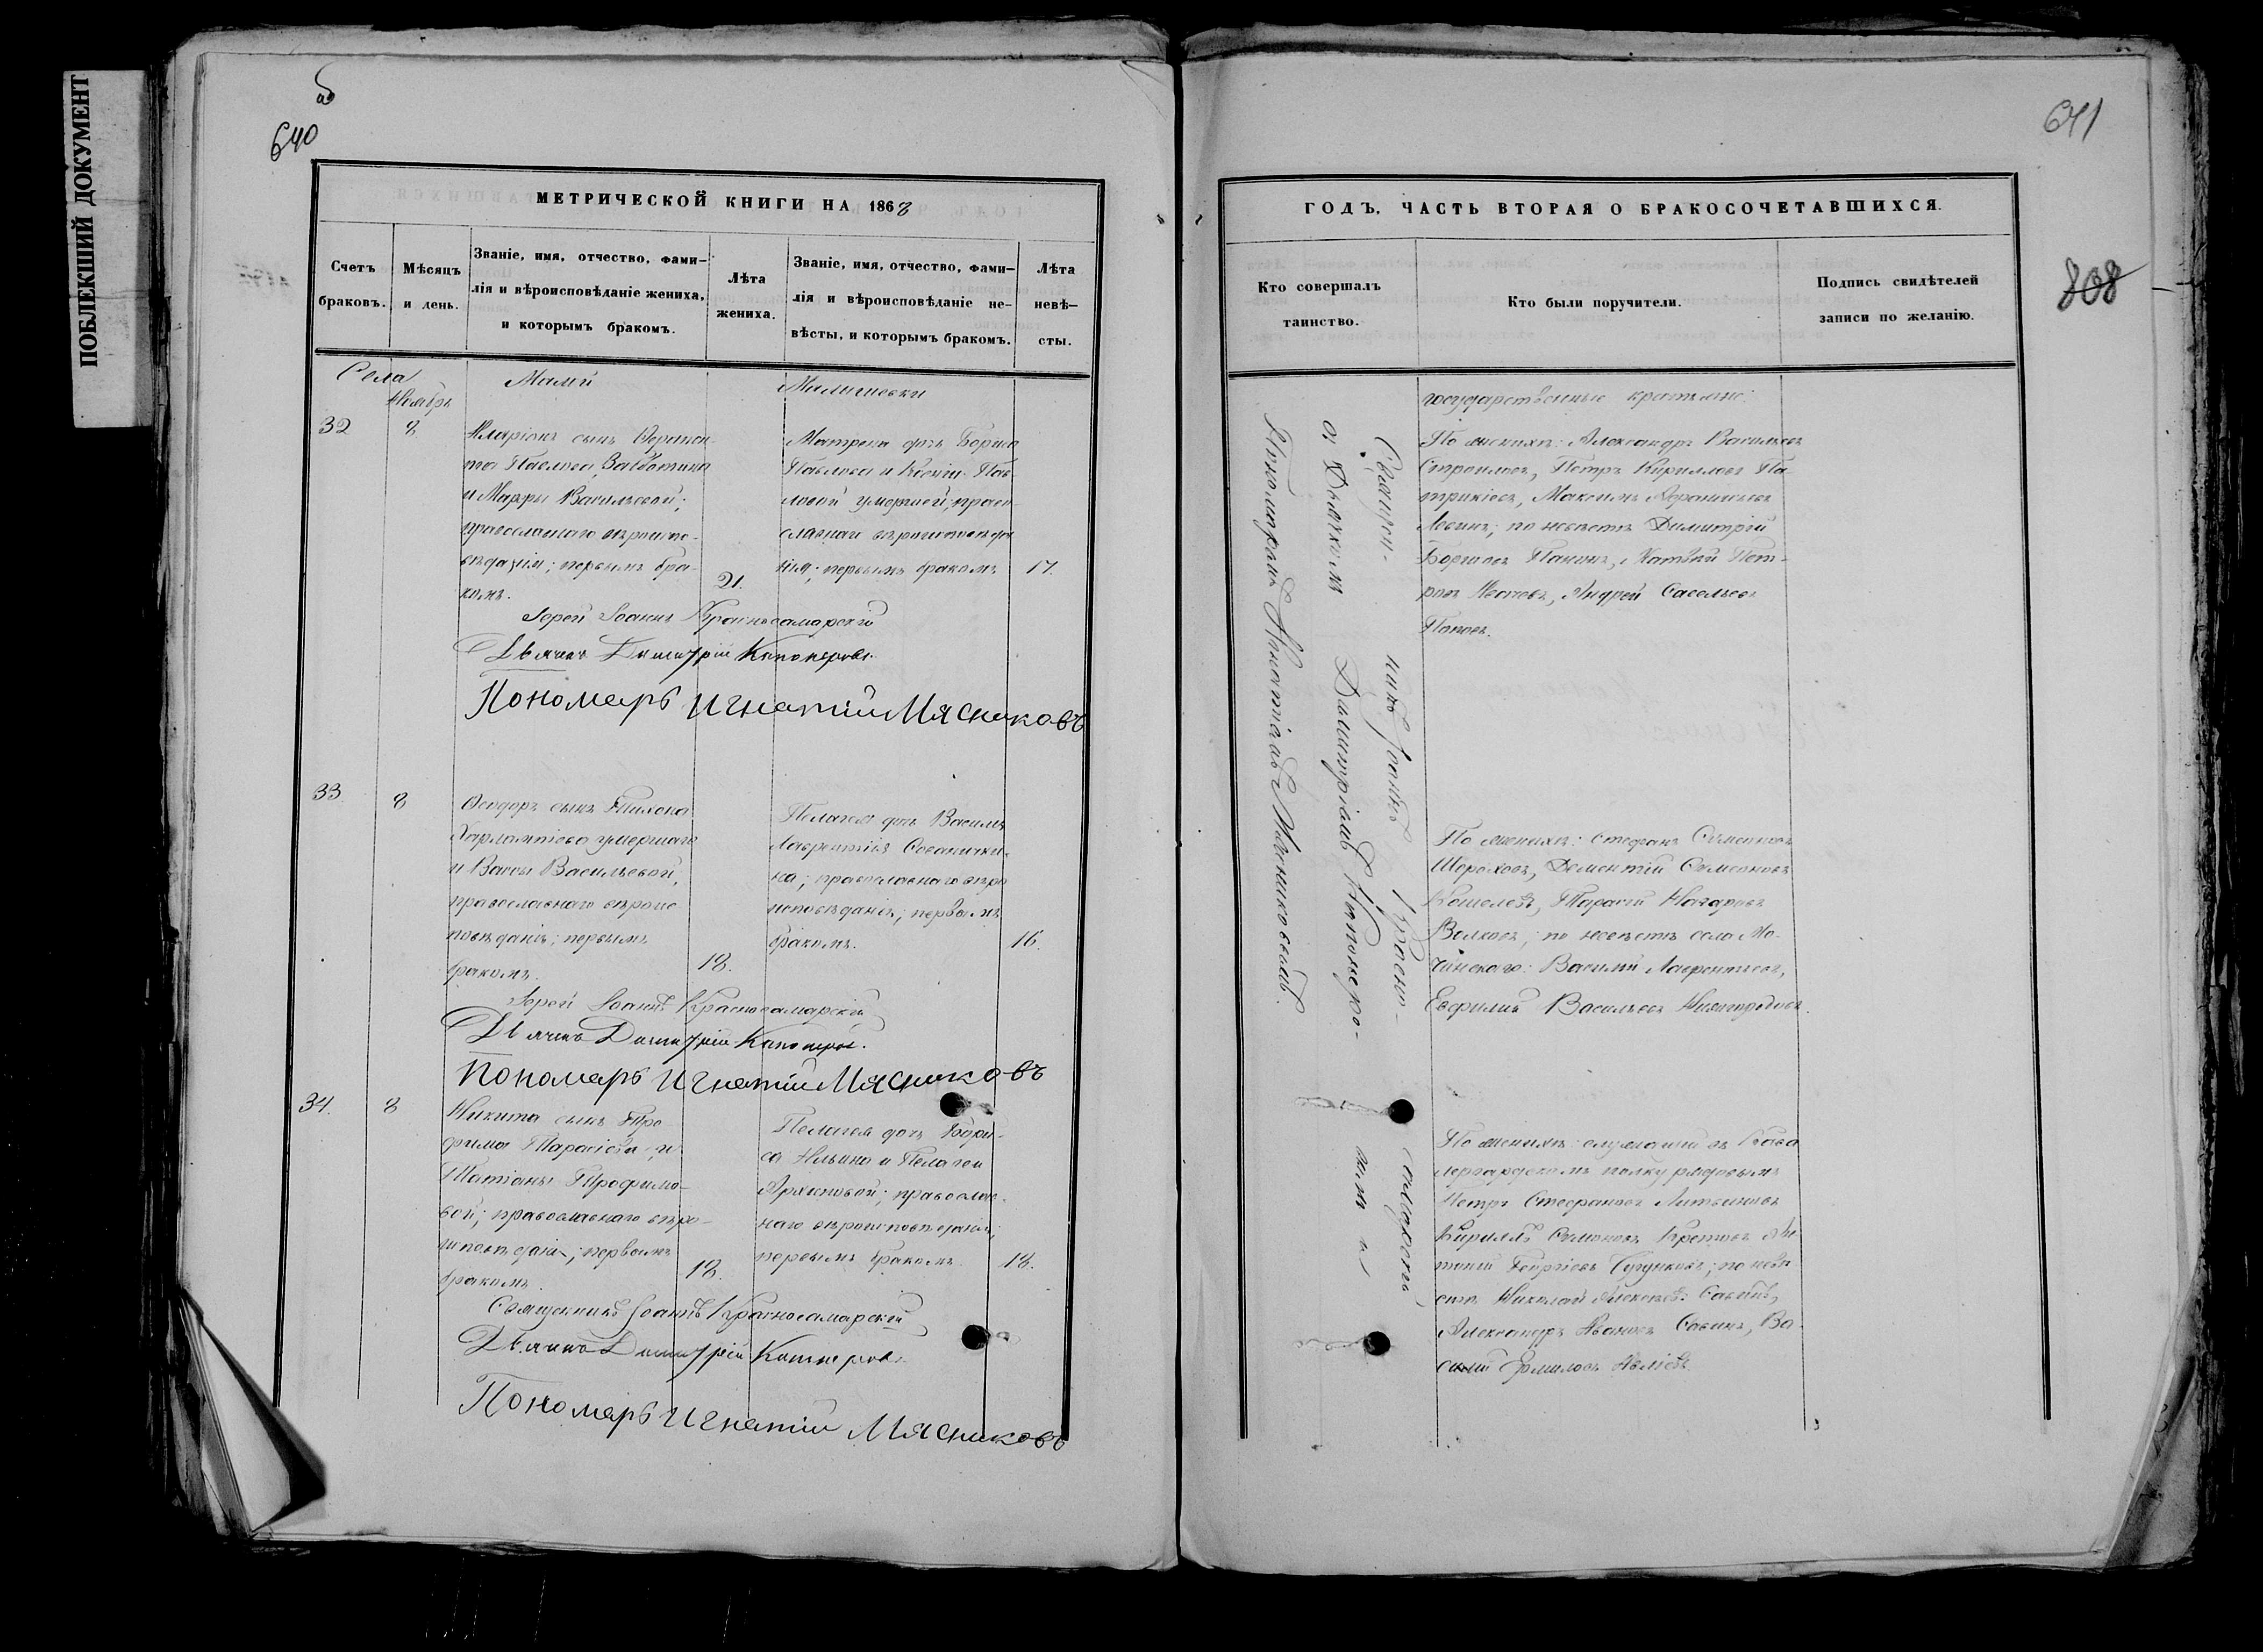 ПОБЛЕКШИЙ ДОКУМЕНТ
об
640
МЕТРИЧЕСКОЙ КНИГИ НА 1868
Счетъ браковъ.
Мѣсяцъ и день.
Званіе, имя, отчество, фами-
лія и вѣроисповѣданіе жениха,
и которымъ бракомъ.
Лѣта жениха.
Званіе, имя, отчество, фами-
лія и вѣроисповѣданіе не-
вѣсты, и которымъ бракомъ.
Лѣта невѣ-
сты.
Села Малой Малышевки
Ноябрь
32
8
Иларіонъ сынъ
Павлова
и Марѳы Васильевой;
православнаго вѣроиспо-
вѣданія; первымъ бра-
комъ.
21.
Матрена дочь Бориса
Павлова и Ксеніи Пав-
ловой умершей; право
славнаго вѣроисповѣда
нія; первымъ бракомъ
17.
Іерей Іоаннъ Красносамарскій
Дьячекъ Димитрій Канонеровъ.
Пономарь Игнатій Мясниковъ
33
8
Ѳеодоръ сынъ Тихона
Харлампіева умершаго
и Вассы Васильевой,
православнаго вѣроис
повѣданія; первымъ
бракомъ.
18.
Пелагея дочь Василья
Лаврентіева
на; православнаго вѣро
исповѣданія; первымъ
бракомъ.
16.
Іерей Іоаннъ Красносамарскій
Дьячекъ Димитрій Канонеровъ.
Пономарь Игнатій Мясниковъ
34.
8
Никита сынъ Тро
фима Тарасіева и
Татіаны Трофимо-
вой; православнаго вѣро-
исповѣданія; первымъ
бракомъ.
18.
Пелагея дочь Бори-
са Ильина и Пелагеи
православ-
наго вѣроисповѣданія;
первымъ бракомъ.
18.
Священникъ Іоаннъ Красносамарскій
Дьячекъ Димитрій Канонеровъ.
Пономарь Игнатій Мясниковъ
641
808
ГОДЪ, ЧАСТЬ ВТОРАЯ О БРАКОСОЧЕТАВШИХСЯ.
Кто совершалъ
таинство.
Кто были поручители.
Подпись свидѣтелей
записи по желанію.
Священ-
никъ Іоаннъ Красно-
самарскій
съ Дьячкомъ Димитріемъ Канонеро-
вымъ и
Пономаремъ Игнатіемъ Мясниковымъ.
государственные крестьяне:
По женихѣ: Александръ Васильевъ
Строиловъ, Петръ Кирилловъ Па-
трикѣевъ, Максимъ
Левинъ; по невѣстѣ Димитрій
Борисовъ Панинъ, Пет-
ровъ Андрей Савельевъ
Поповъ.
По женихѣ: Стефанъ Семеновъ
Шороховъ, Дементій Симеоновъ
Кошелевъ, Тарасій Назаровъ
Волковъ; по невѣстѣ села Мо-
чинскаго: Василій Лаврентьевъ,
Евфимій Васильевъ
По женихѣ: служащій въ Кава
лергардскомъ полку рядовымъ
Петръ Стефановъ Литвиновъ
Кириллъ Симоновъ
Георгіевъ по невѣ
стѣ Николай Алексѣевъ Савинъ,
Александръ Ивановъ Савинъ, Ва-
силій Ермиловъ